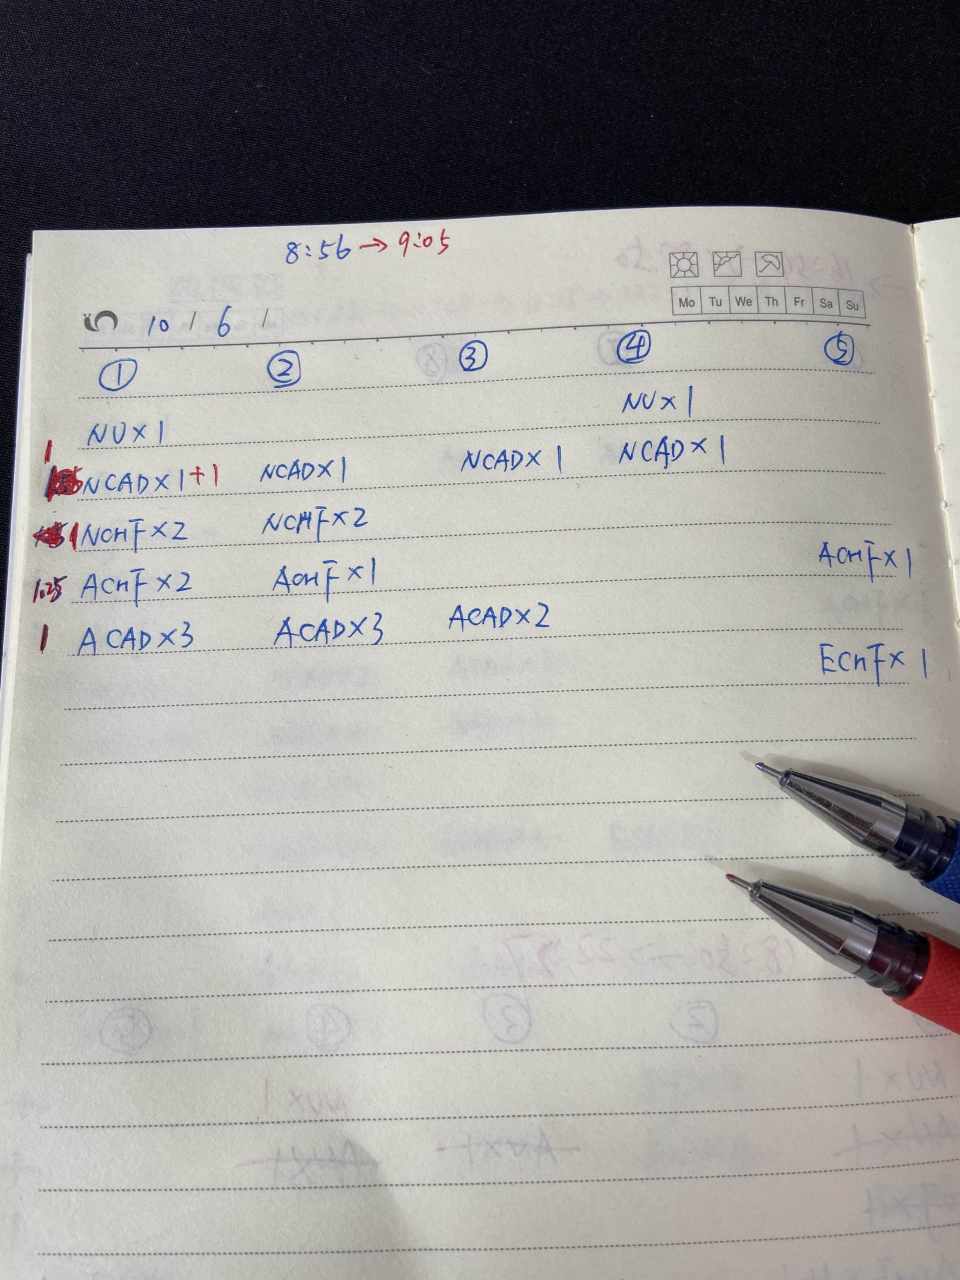 8:56 → 9:05
Mo Tu We Th Fr Sa Su
10 / 6 /
① ② ③ ④ ⑤
NU×1 NU×1
1
NCAD×1+1 NCAD×1 NCAD×1 NCAD×1
1 NCHF×2 NCHF×2
1.25 ACHF×2 ACHF×1 ACHF×1
1 ACAD×3 ACAD×3 ACAD×2
ECHF×1